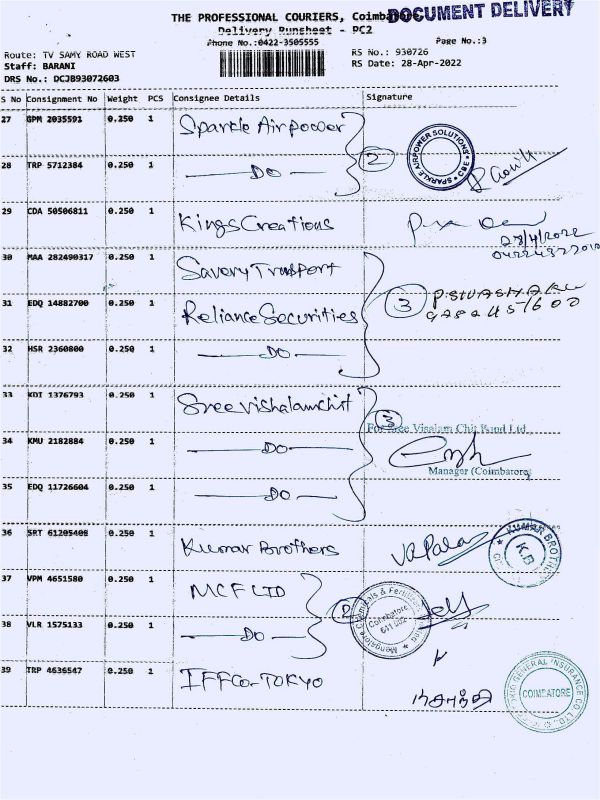 THE PROFESSIONAL COURIERS, Coimbatore
DOCUMENT DELIVERY
Delivery Runsheet - PC2
Phone No.:0422-3505555
Page No.:3
Route: TV SAMY ROAD WEST
RS No.: 930726
Staff: BARANI
RS Date: 28-Apr-2022
DRS No.: DCJB93072603
S No Consignment No Weight PCS Consignee Details Signature
27 GPM 2035591 0.250 1 Sparkle Airpower
SPARKLE AIRPOWER SOLUTIONS CBE
2
28 TRP 5712384 0.250 1 DO
29 CDA 50506811 0.250 1 Kings Creations
28/4/2022
30 MAA 282490317 0.250 1 Savery Trasport
3
31 EDQ 14882700 0.250 1 Reliance Securities
32 HSR 2360800 0.250 1 DO
33 KDI 1376793 0.250 1 Sree vishalamchit
3
For Sree Visalam Chit Fund Ltd.
34 KMU 2182884 0.250 1 DO
Manager (Coimbatore)
35 EDQ 11726604 0.250 1 DO
36 SRT 61205408 0.250 1 Kumar Brothers
KUMAR BROTHERS
K.B
37 VPM 4651580 0.250 1 MCF LTD
2
Mangalore Chemicals & Fertilizers
Coimbatore
641 002
38 VLR 1575133 0.250 1 DO
39 TRP 4636547 0.250 1 IFFCO-TOKYO
GENERAL INSURANCE CO. LTD.
COIMBATORE